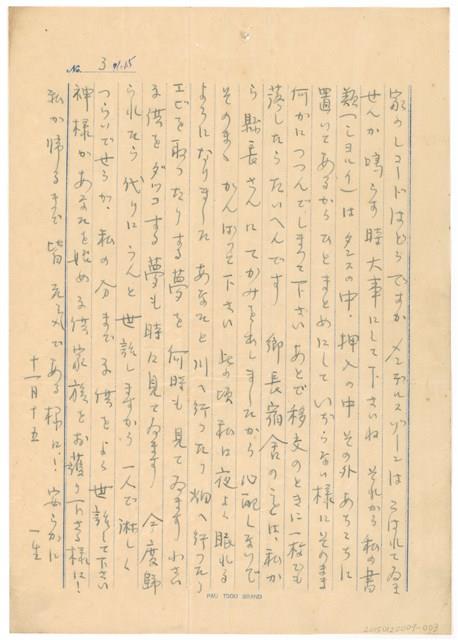 No. 3 11.15
家のレコードはどうですか メンデルスゾーンはこはれてゐま
せんか 鳴らす時大事にして下さいね それから私の書
類(ミヨルイ)はタンスの中、押入の中 その外あちこちに
置いてあるからひとまとめにしていぢらない様にそのまま
何かにつつんでしまつて下さい あとで移交のときに一枚でも
落したらたいへんです 郷長宿舎のことは、私か
ら縣長さんにてがみを出しましたから 心配しないで
そのまゝがんばつて下さい 此の頃私は夜よく眠れる
ようになりました あなたと川へ行つたり 畑へ行つたり
エビを取つたりする夢を何時も見てゐます 小さい
子供をダッコする夢も時に見てゐます 今度歸
られたら代りにうんと世話しますから 一人で淋しく
つらいでせうが、私の分まで子供をよく世話して下さい
神様があなたを始め子供家族をお護り下さる様に!
私が帰るまで皆元気である様に!! 安らかに
十一月十五 一生
PAU TOOU BRAND
20150120009-003